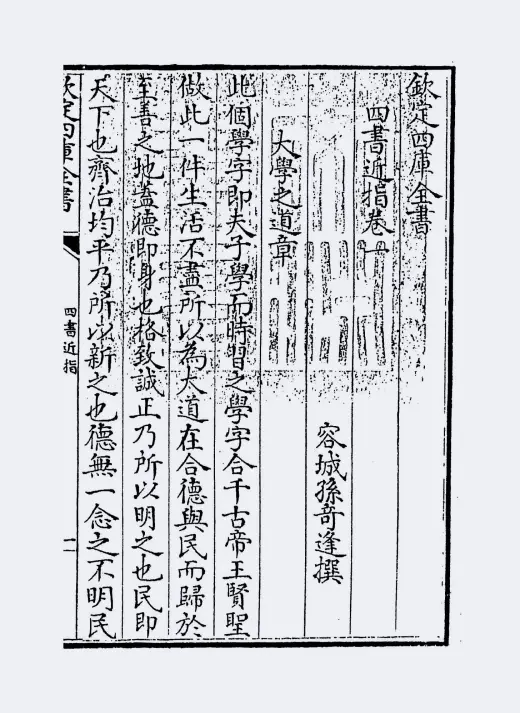 欽定四庫全書
四書近指卷一
容城孫奇逢撰
大學之道章
此個學字即夫子學而時習之學字合千古帝王賢聖
做此一件生活不盡所以為大道在合德與民而歸於
至善之地蓋德即身也格致誠正乃所以明之也民即
天下也齊治均平乃所以新之也德無一念之不明民
欽定四庫全書
四書近指
一